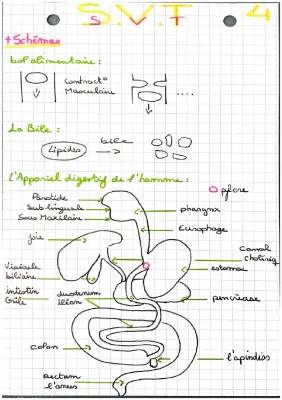 S.V.T 4
+ Schémas
bol alimentaire :
Contract°
Musculaire
....
La Bile :
Lipides
bile
L'Appareil digestif de l'homme :
pylore
Parotide
Sub linguale
Sous Maxilaire
pharynx
Eusophage
foie
Canal
estomac
Vésicule
biliaire
intestin
Grêle
duodenum
iléon
pencréase
Colon
l'apindiss
Rectum
l'anus